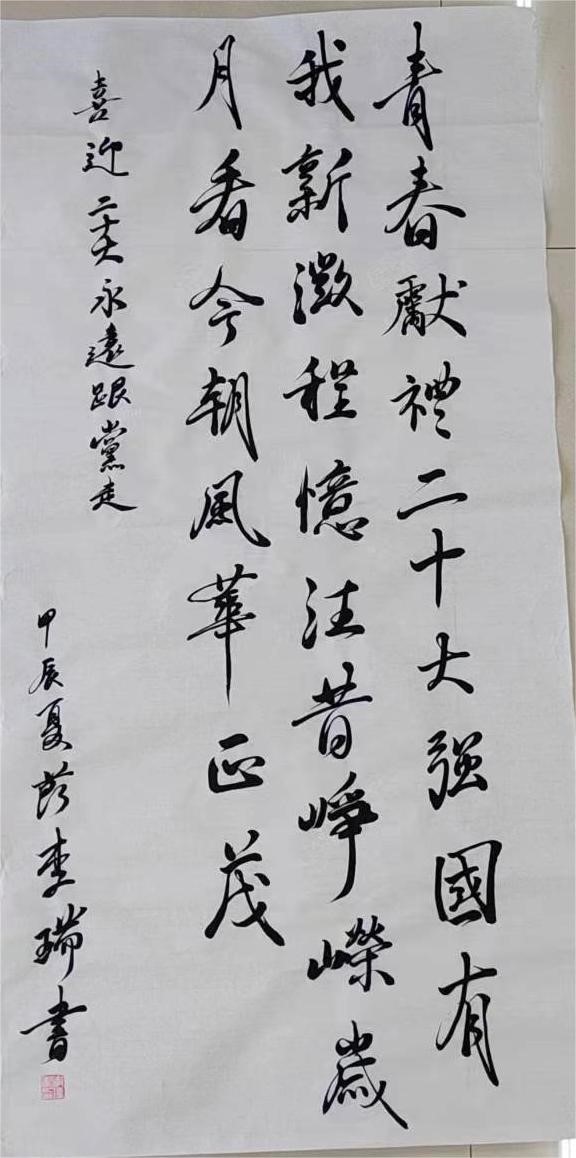 青春獻禮二十大强國有
我新徵程憶往昔崢嶸歲
月看今朝風華正茂
喜迎二十大永遠跟黨走
甲辰夏李瑞書